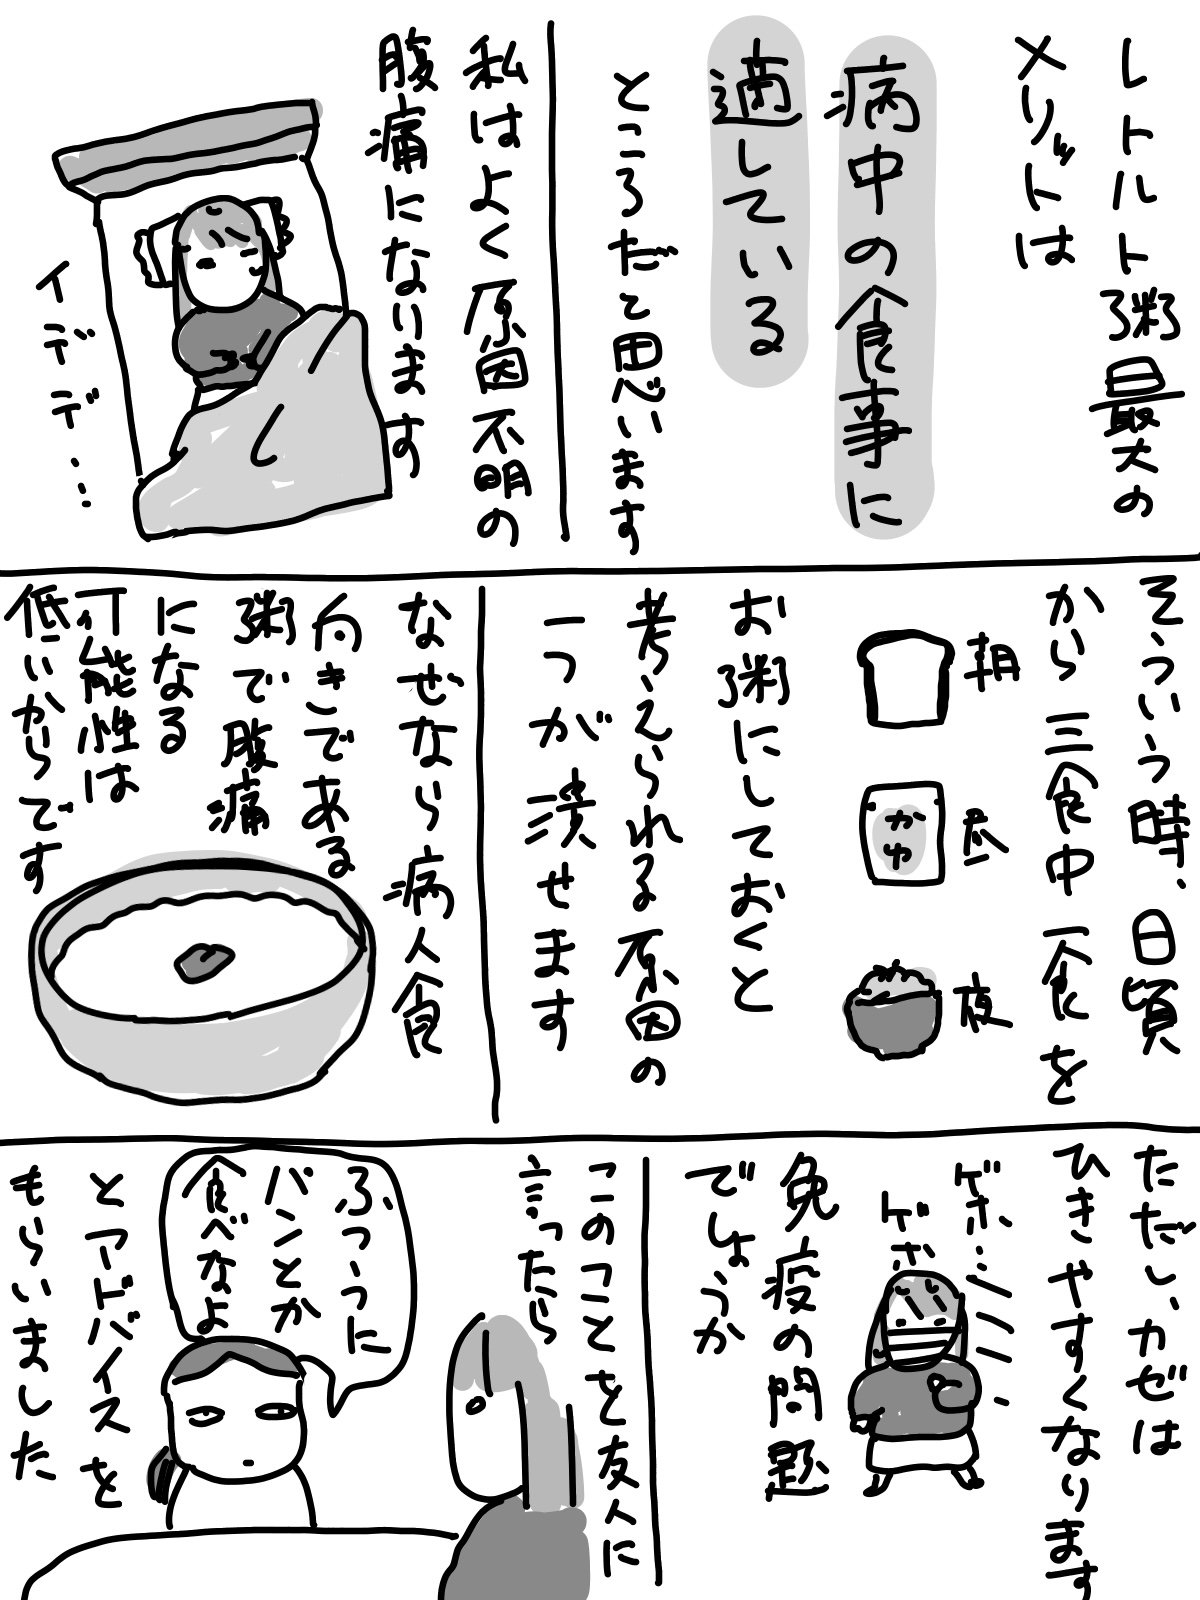 レトルト粥最大の
メリットは
病中の食事に
適している
ところだと思います
私はよく原因不明の
腹痛になります
イデデデ…
そういう時、日頃
から三食中一食を
朝
昼
かゆ
夜
お粥にしておくと
考えられる原因の
一つが潰せます
なぜなら病人食
向きである
粥で腹痛
になる
可能性は
低いからです
ただし、かぜは
ひきやすくなります
ゲホ…
ゲホ
免疫の問題
でしょうか
このことを友人に
言ったら
ふつうに
パンとか
食べなよ
とアドバイスを
もらいました